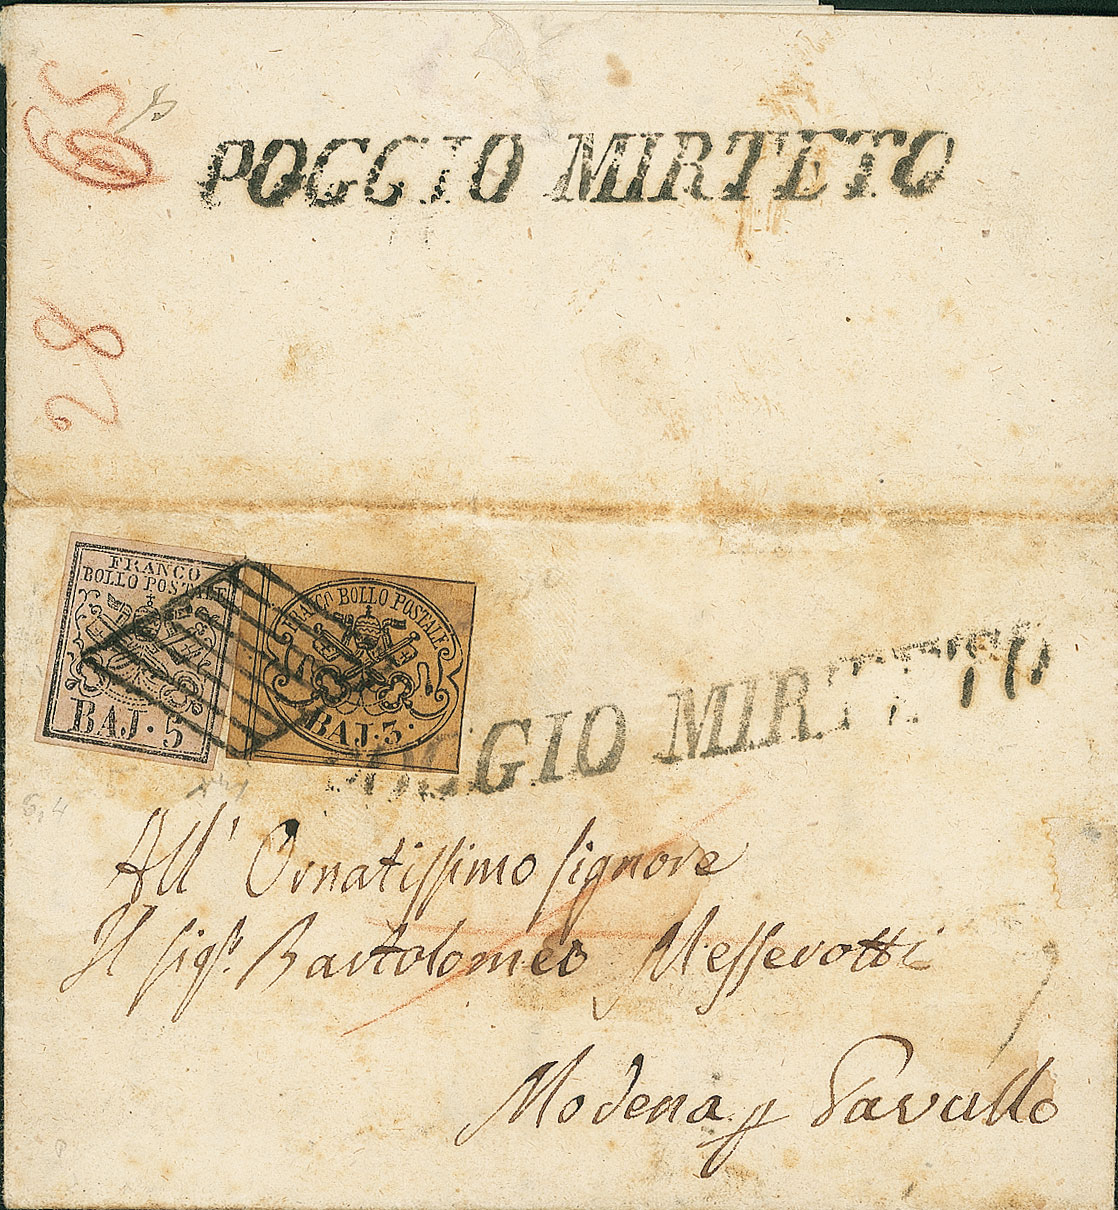 65
POGGIO MIRTETO
28
FRANCO
BOLLO POSTALE
BAJ. 5
FRANCO BOLLO POSTALE
BAJ. 3.
POGGIO MIRTETO
5,4
All' Ornatissimo Signore
Il Sigr. Bartolomeo Messerotti
Modena p Pavullo